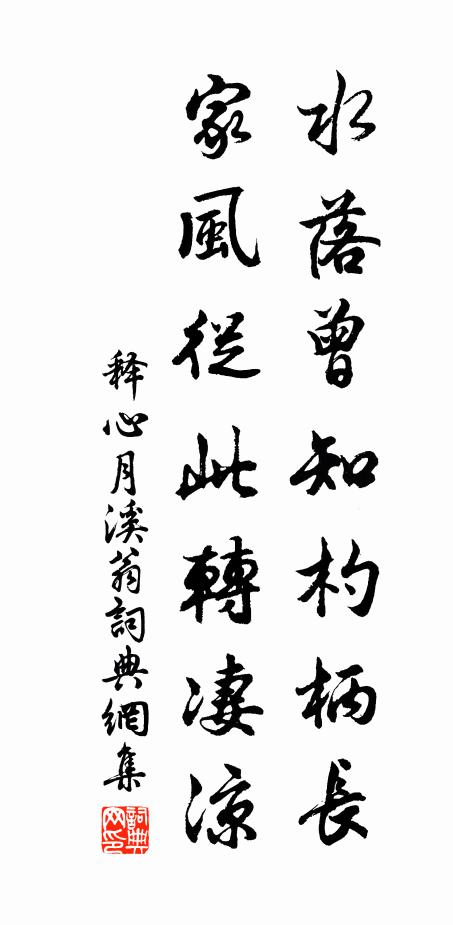 水落曾知杓柄長
家風從此轉凄涼
释心月溪翁詞典網集
詞典网印